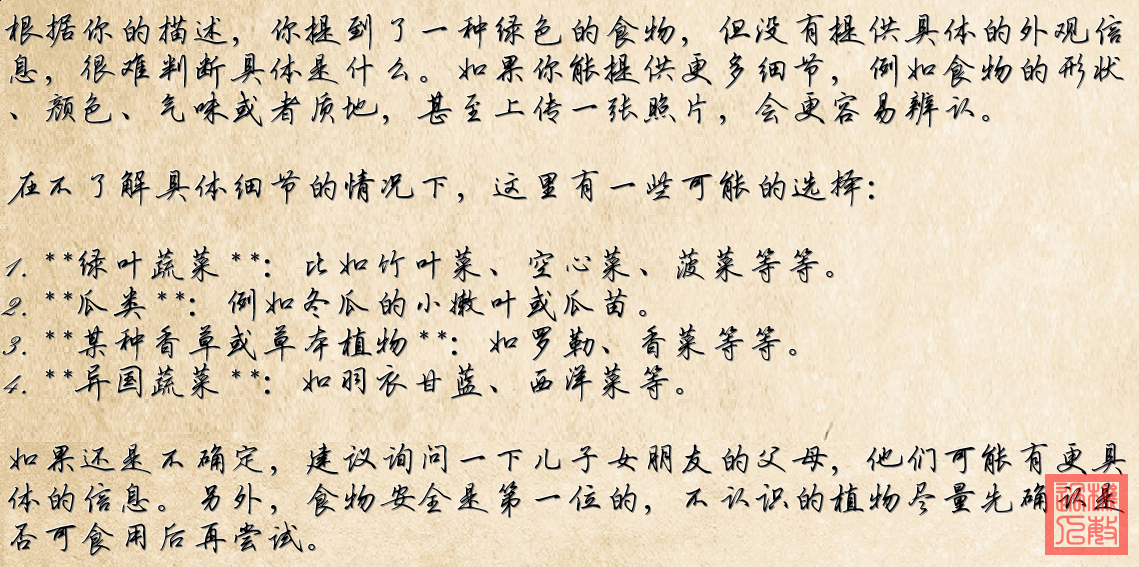 根据你的描述，你提到了一种绿色的食物，但没有提供具体的外观信
息，很难判断具体是什么。如果你能提供更多细节，例如食物的形状
、颜色、气味或者质地，甚至上传一张照片，会更容易辨认。
在不了解具体细节的情况下，这里有一些可能的选择：
1. **绿叶蔬菜**：比如竹叶菜、空心菜、菠菜等等。
2. **瓜类**：例如冬瓜的小嫩叶或瓜苗。
3. **某种香草或草本植物**：如罗勒、香菜等等。
4. **异国蔬菜**：如羽衣甘蓝、西洋菜等。
如果还是不确定，建议询问一下儿子女朋友的父母，他们可能有更具
体的信息。另外，食物安全是第一位的，不认识的植物尽量先确认是
否可食用后再尝试。